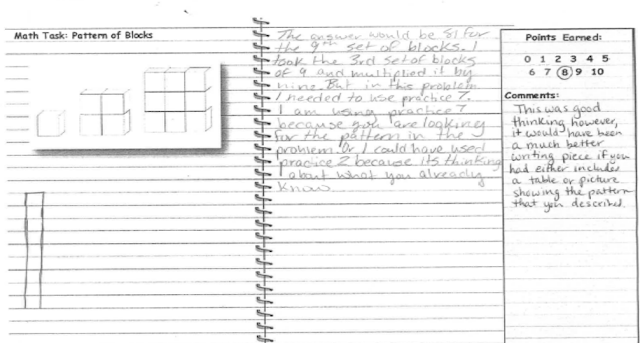 Math Task: Pattern of Blocks
The answer would be 81 for
the 9th set of blocks. I
took the 3rd set of blocks
of 9 and multiplied it by
nine. But in this problem
I needed to use practice 7.
I am using practice 7
because you are looking
for the pattern in the
problem. Or I could have used
practice 2 because its thinking
about what you already
know.
Points Earned:
0 1 2 3 4 5
6 7 8 9 10
Comments:
This was good
thinking however,
it would have been
a much better
writing piece if you
had either includes
a table or picture
showing the pattern
that you described.